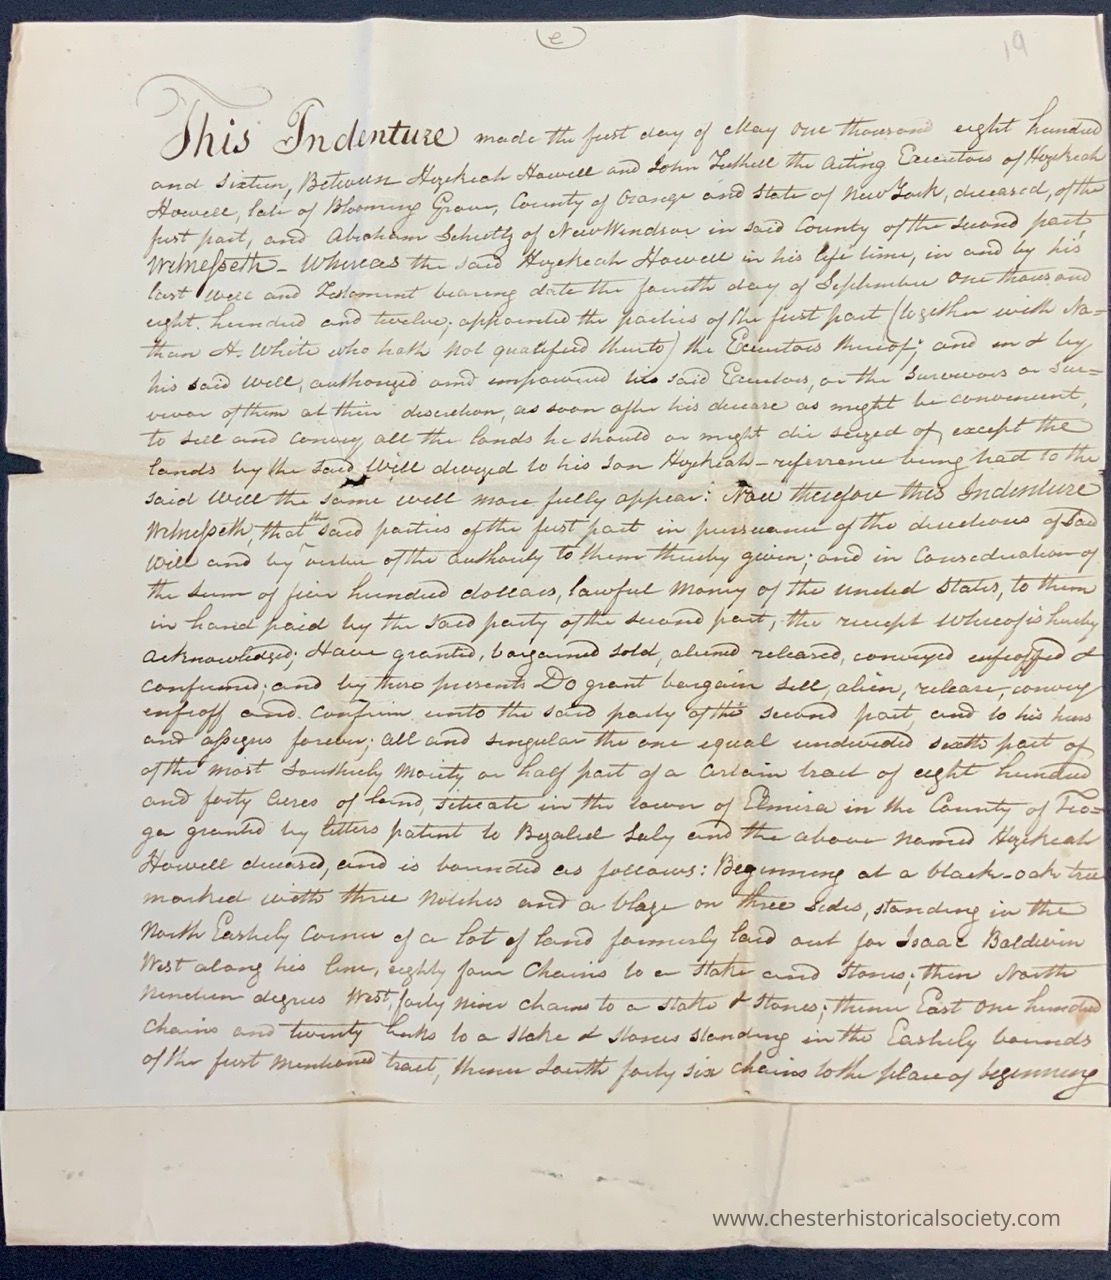 e
19
This Indenture made the first day of May one thousand eight hundred
and sixteen, Between Hezekiah Howell and John Tuthill the acting Executors of Hezekiah
Howell, late of Blooming Grove, County of Orange and State of New York, deceased, of the
first part, and Abraham Schultz of New Windsor in said County of the second part,
Witnesseth – Whereas the said Hezekiah Howell in his life time, in and by his
last Will and Testament bearing date the fourth day of September one thousand
eight hundred and twelve, appointed the parties of the first part (together with Na=
than H. White who hath not qualified thereto) the Executors thereof; and in & by
his said Will, authorized and impowered his said Executors, or the Survivors or Sur=
vivor of them at their discretion, as soon after his decease as might be convenient,
to sell and convey all the lands he should or might die seized of, except the
lands by the said Will devised to his son Hezekiah – referrence being had to the
said Will the same will more fully appear: Now therefore this Indenture
Witnesseth, that the said parties of the first part in pursuance of the directions of said
Will and by virtue of the authority to them thereby given; and in consideration of
the sum of five hundred dollars, lawful money of the united States, to them
in hand paid by the said party of the second part, the receipt whereof is hereby
acknowledged; Have granted, bargained sold, aliened released, conveyed enfeoffed &
confirmed; and by these presents Do grant bargain sell, alien, release, convey
enfeoff and confirm unto the said party of the second part, and to his heirs
and assigns forever; all and singular the one equal undivided sixth part of
of the most Southerly moiety or half part of a certain tract of eight hundred
and forty acres of land, situate in the town of Elmira in the County of Tio=
ga granted by letters patent to Bezaleel Saly and the above named Hezekiah
Howell deceased, and is bounded as follows: Beginning at a black-oak tree
marked with three notches and a blaze on three sides, standing in the
North Easterly corner of a lot of land formerly laid out for Isaac Baldwin
West along his line, eighty four chains to a stake and stones; then North
nineteen degrees West, forty nine chains to a stake & stones; thence East one hundred
chains and twenty links to a stake & stones standing in the Easterly bounds
of the first mentioned tract, thence South forty six chains to the place of beginning
www.chesterhistoricalsociety.com